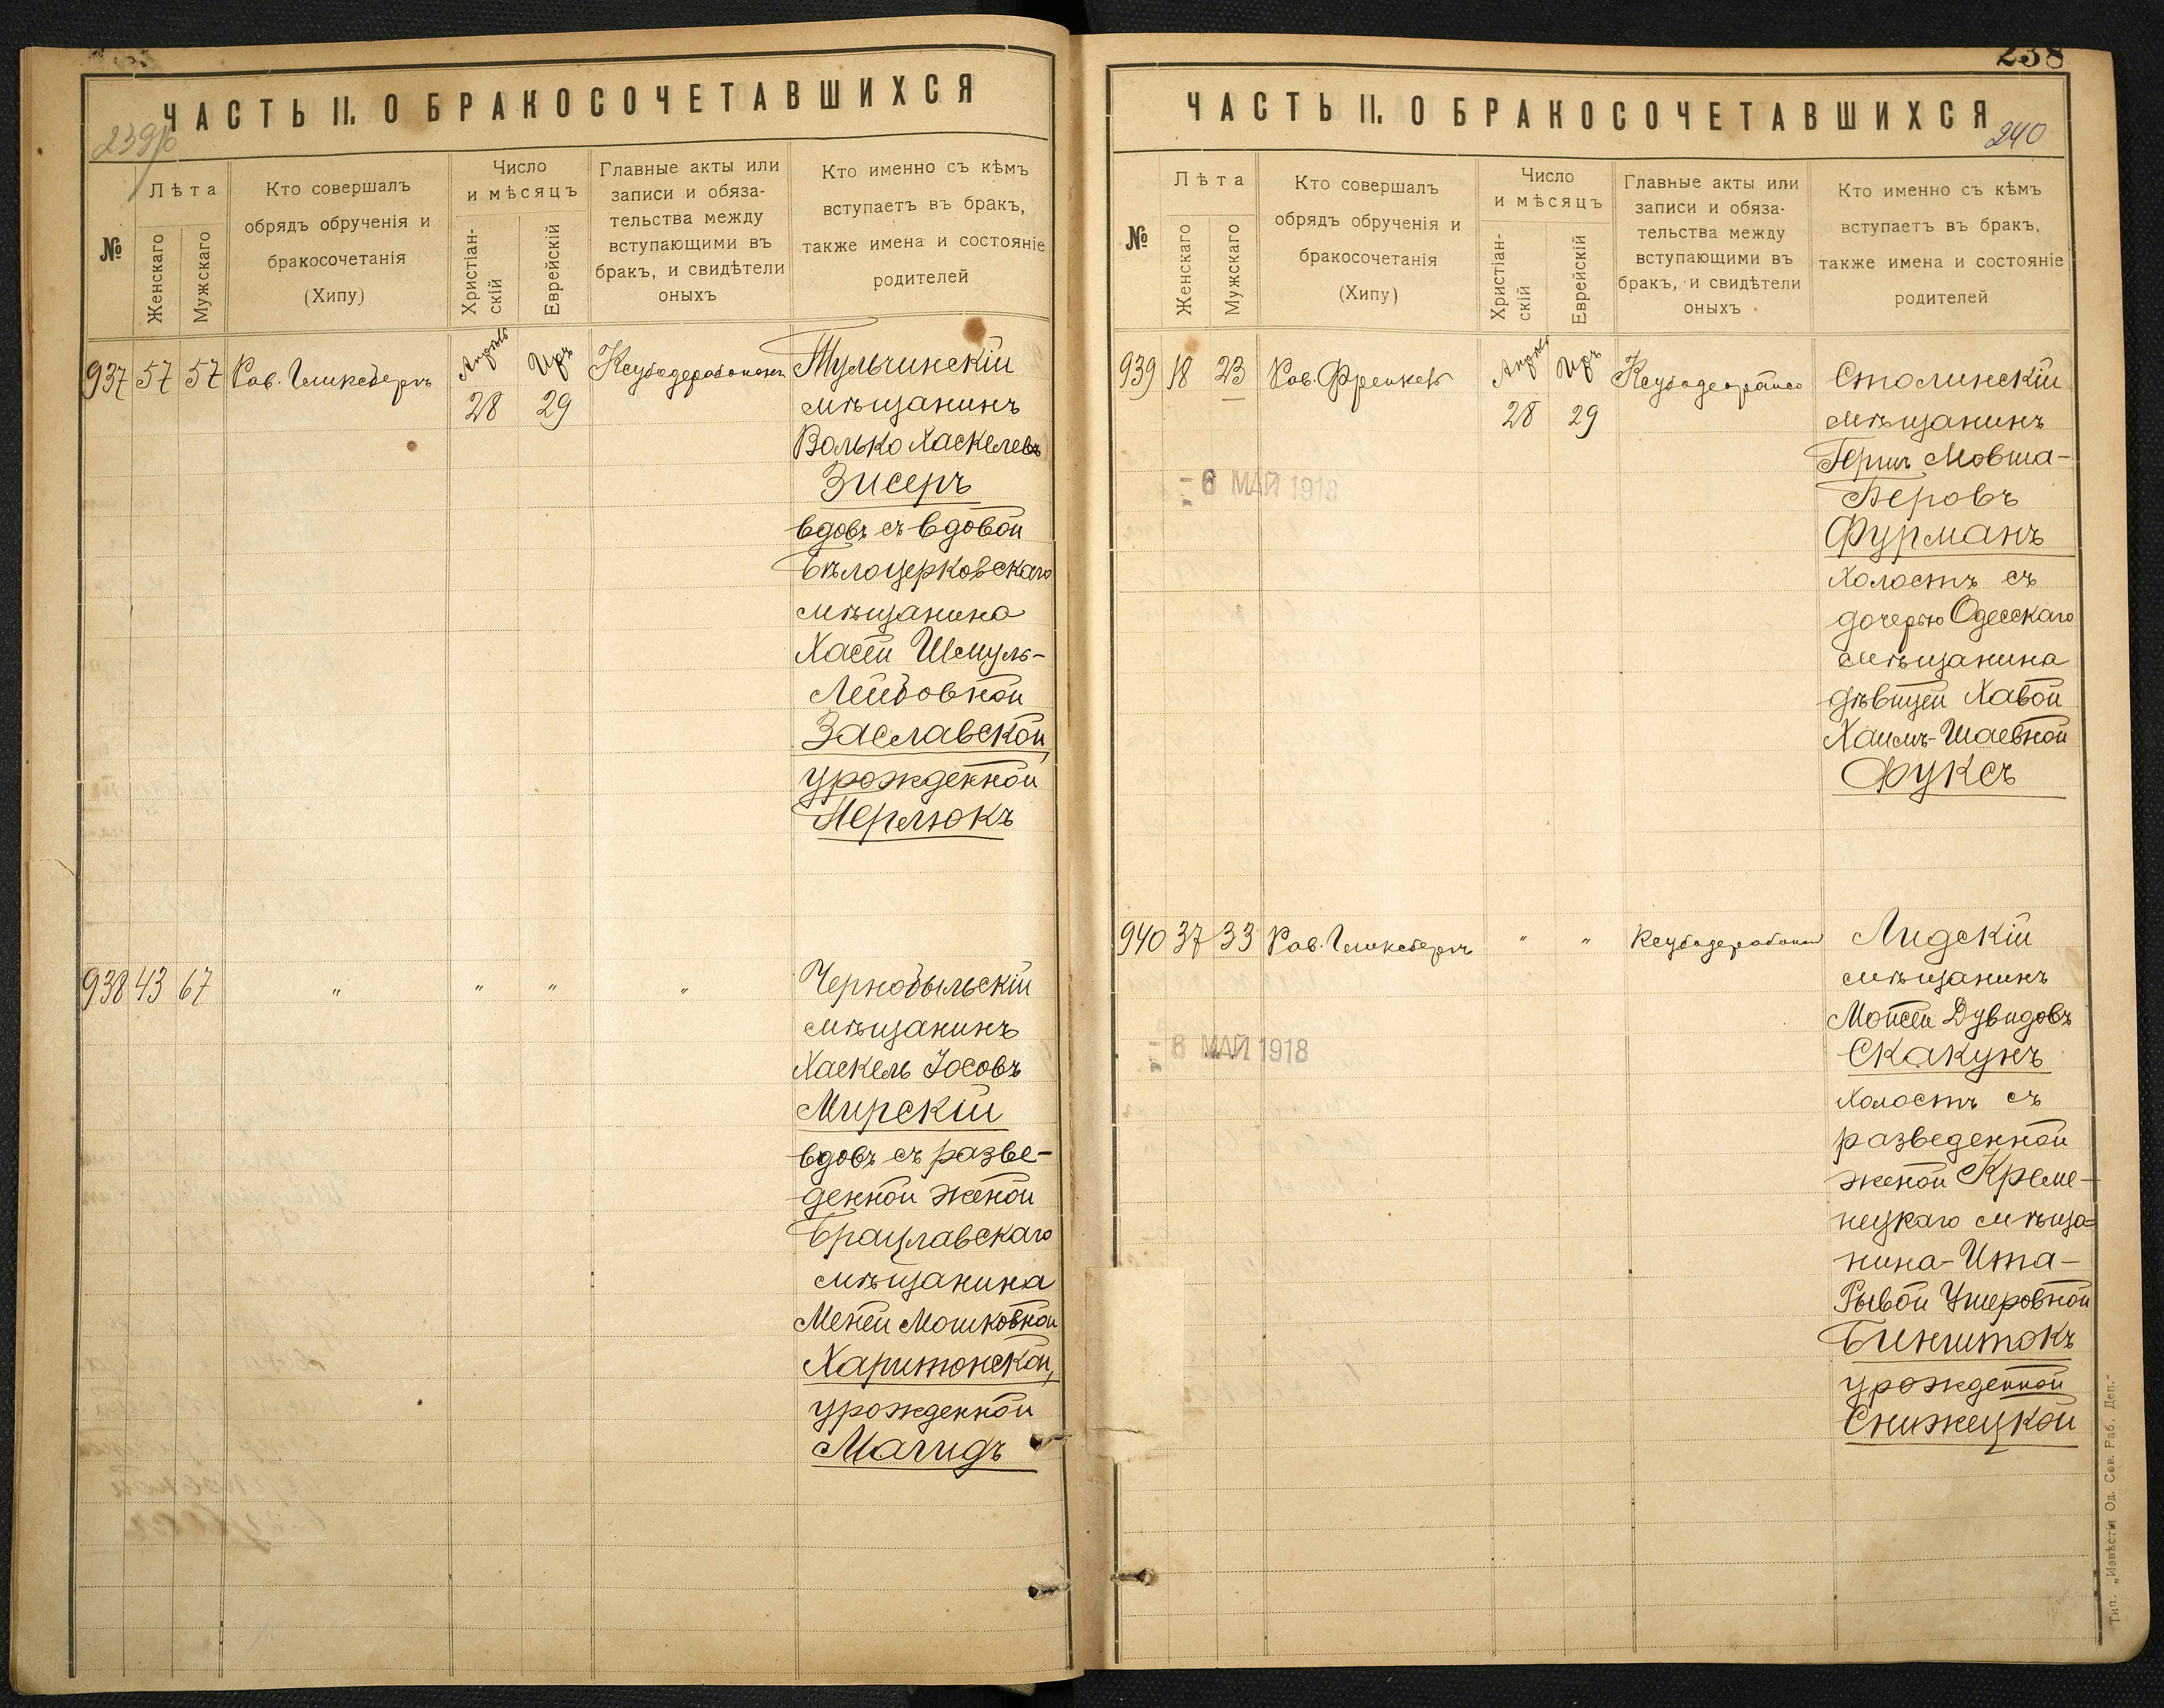 ЧАСТЬ II. О БРАКОСОЧЕТАВШИХСЯ
№
Лѣта
Женскаго
Мужскаго
Кто совершалъ
обрядъ обрученія и
бракосочетанія
(Хипу)
Число
и мѣсяцъ
Христіан-
скій
Еврейскій
Главные акты или
записи и обяза-
тельства между
вступающими въ
бракъ, и свидѣтели
оныхъ
Кто именно съ кѣмъ
вступаетъ въ бракъ,
также имена и состояніе
родителей
937 57 57 Рав.
28 29
Тульчинскій
мѣщанинъ
Волько Хаскелевъ
Зисеръ
вдовъ съ вдовой
Бѣлоцерковскаго
мѣщанина
Хасей Шмуль-
Лейбовной
Заславской,
урожденной
Перлюкъ
938 43 67 " " " "
Чернобыльскій
мѣщанинъ
Хаскель Іосовъ
Мирскій
вдовъ съ разве-
денной женой
Брацлавскаго
мѣщанина
Меней Мошковной
Харитонской,
урожденной
Магидъ
238
ЧАСТЬ II. О БРАКОСОЧЕТАВШИХСЯ
240
№
Лѣта
Женскаго
Мужскаго
Кто совершалъ
обрядъ обрученія и
бракосочетанія
(Хипу)
Число
и мѣсяцъ
Христіан-
скій
Еврейскій
Главные акты или
записи и обяза-
тельства между
вступающими въ
бракъ, и свидѣтели
оныхъ
Кто именно съ кѣмъ
вступаетъ въ бракъ,
также имена и состояніе
родителей
939 18 23 Рав. Френкель
28 29
Столинскій
мѣщанинъ
Герш Мовша-
Беровъ
Фурманъ
холостъ съ
дочерью Одесскаго
мѣщанина
дѣвицей Хавой
Хаимъ-Шаевной
Фуксъ
- 6 МАЙ 1918
940 37 33 Рав. " "
Лидскій
мѣщанинъ
Мойсей Дувидовъ
Скакунъ
холостъ съ
разведенной
женой Креме-
нецкаго мѣща=
нина-Ита-
Рывой Ушеровной
Бинштокъ
урожденной
Снижецкой
- 6 МАЙ 1918
Тип. „Извѣстія Од. Сов. Раб. Деп."